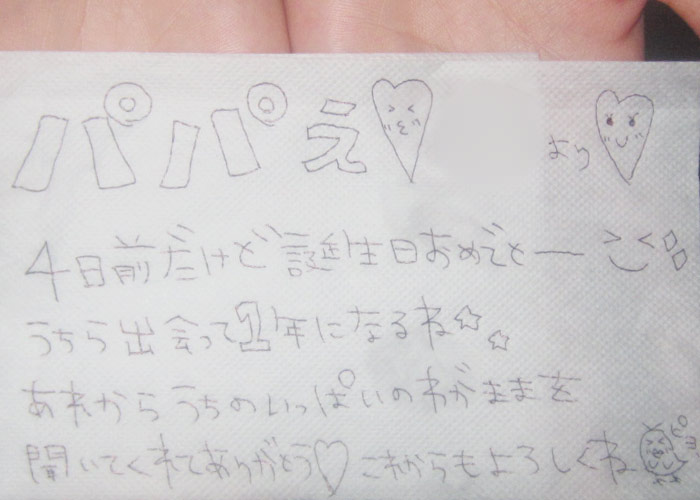 パパえ♡ より♡
4日前だけど誕生日おめでとー
うちら出会って1年になるね☆☆
あれからうちのいっぱいのわがままを
聞いてくれてありがとう♡これからもよろしくね